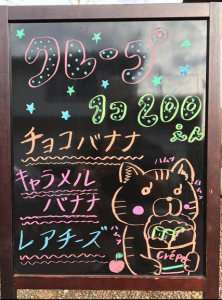 クレープ
1コ 200えん
チョコバナナ
キャラメル
バナナ
レアチーズ
ハムッ
ハムッ
CRÊPE